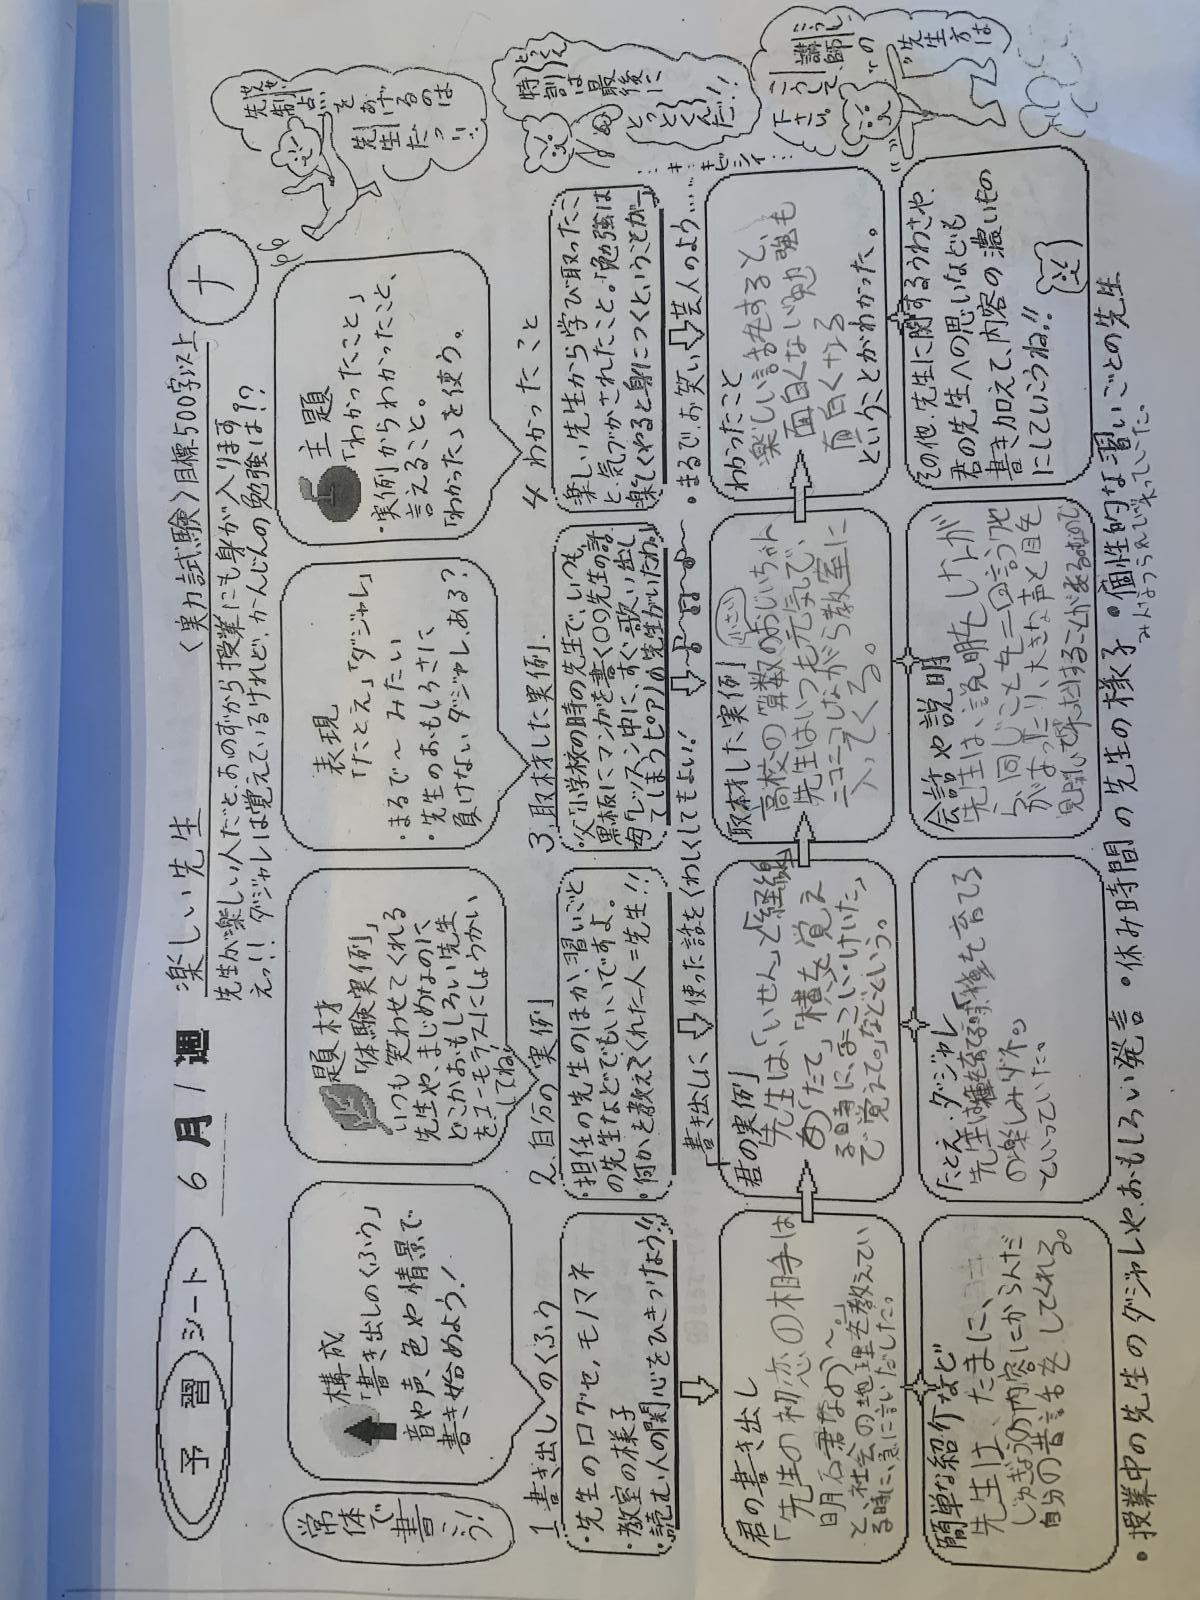 予習シート
6月1週
楽しい先生
〈実力試験〉目標500字以上
ナ
先生が楽しい人だと、おのずから授業にも身が入ります。
えっ!! ダジャレは覚えているけれど、かんじんの勉強は!?
常体で書こう!
構成
「書き出しのくふう」
音や声、色や情景で
書き始めよう!
題材
「体験実例」
いつも笑わせてくれる
先生や、まじめなのに
どこかおもしろい先生
をユーモラスにしょうかい
してね!
表現
「たとえ」「ダジャレ」
・まるで〜みたい
・先生のおもしろさに
負けないダジャレ、ある?
主題
「わかったこと」
・実例からわかったこと、
言えること。
「わかった」を使う。
先制点
を
あげるのは
先生だっ!!
特訓
は
最後に
とっとくんだ!!
ビシィ
講師
の
先生方は
こうして
下さい。
1 書き出しのくふう
・先生の口グセ、モノマネ
・教室の様子
・読む人の関心をひきつけよう!!
2、自分の実例
・担任の先生のほか、習いごと
の先生などでもいいですよ。
・何かを教えてくれた人=先生!!
3、取材した実例.
・父「小学校の時の先生で、いつも
黒板にマンガを書く〇〇先生の話
母「レッスン中に、すぐ歌い出し
てしまうピアノの先生がいたわ」
4 わかったこと
楽しい先生から学び取ったこ
と、気づかされたこと。「勉強は
楽しくやると身につくということが〜」
書き出しに使った話をくわしくしてもよい!
・まるで、お笑い芸人のよう……
君の書き出し
「先生の初恋の相手は
明石君なの〜。」
と、社会の地理を教えてい
る時に、急に言いだした。
君の実例
先生は、「いせん」と「経線」
の「たて」「横」を覚え
る時に、
で覚えて。」などという。
取材した実例
小さい
高校の算数のおじいちゃん
先生はいつも元気で、
ニコニコしながら教室に
入ってくる。
わかったこと
楽しい話をすると、
面白くない勉強も
面白くなる
ということがわかった。
簡単な紹介など
先生は、たまに、
じゅぎょうの内容にからんだ
自分の昔話をしてくれる。
たとえ、ダジャレ
先生は
の楽しみダネ。」
といっていた。
会話や説明
先生は、説明をしなが
ら、同じことを二回言うたり
がなったり、大きな声と目を
見開いて
その他、先生に関するうわさや、
君の先生への思いなども
書き加えて、内容の濃いもの
にしていこうね!!
・授業中の先生のダジャレや、おもしろい発言・休み時間の先生の様子・個性的な習いごとの先生
みんなつられて笑っていた。